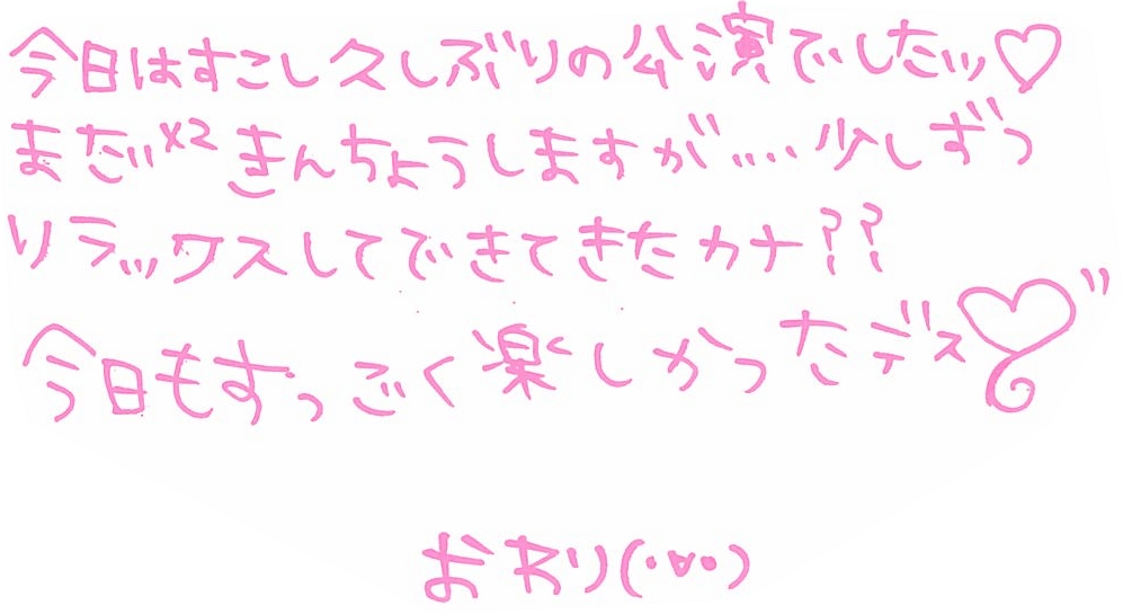 今日はすこし久しぶりの公演でしたッ♡
まだ×2きんちょうしますが…少しずつ
リラックスしてできてきたカナ??
今日もすっごく楽しかったデス♡"
おわり(・∀・)